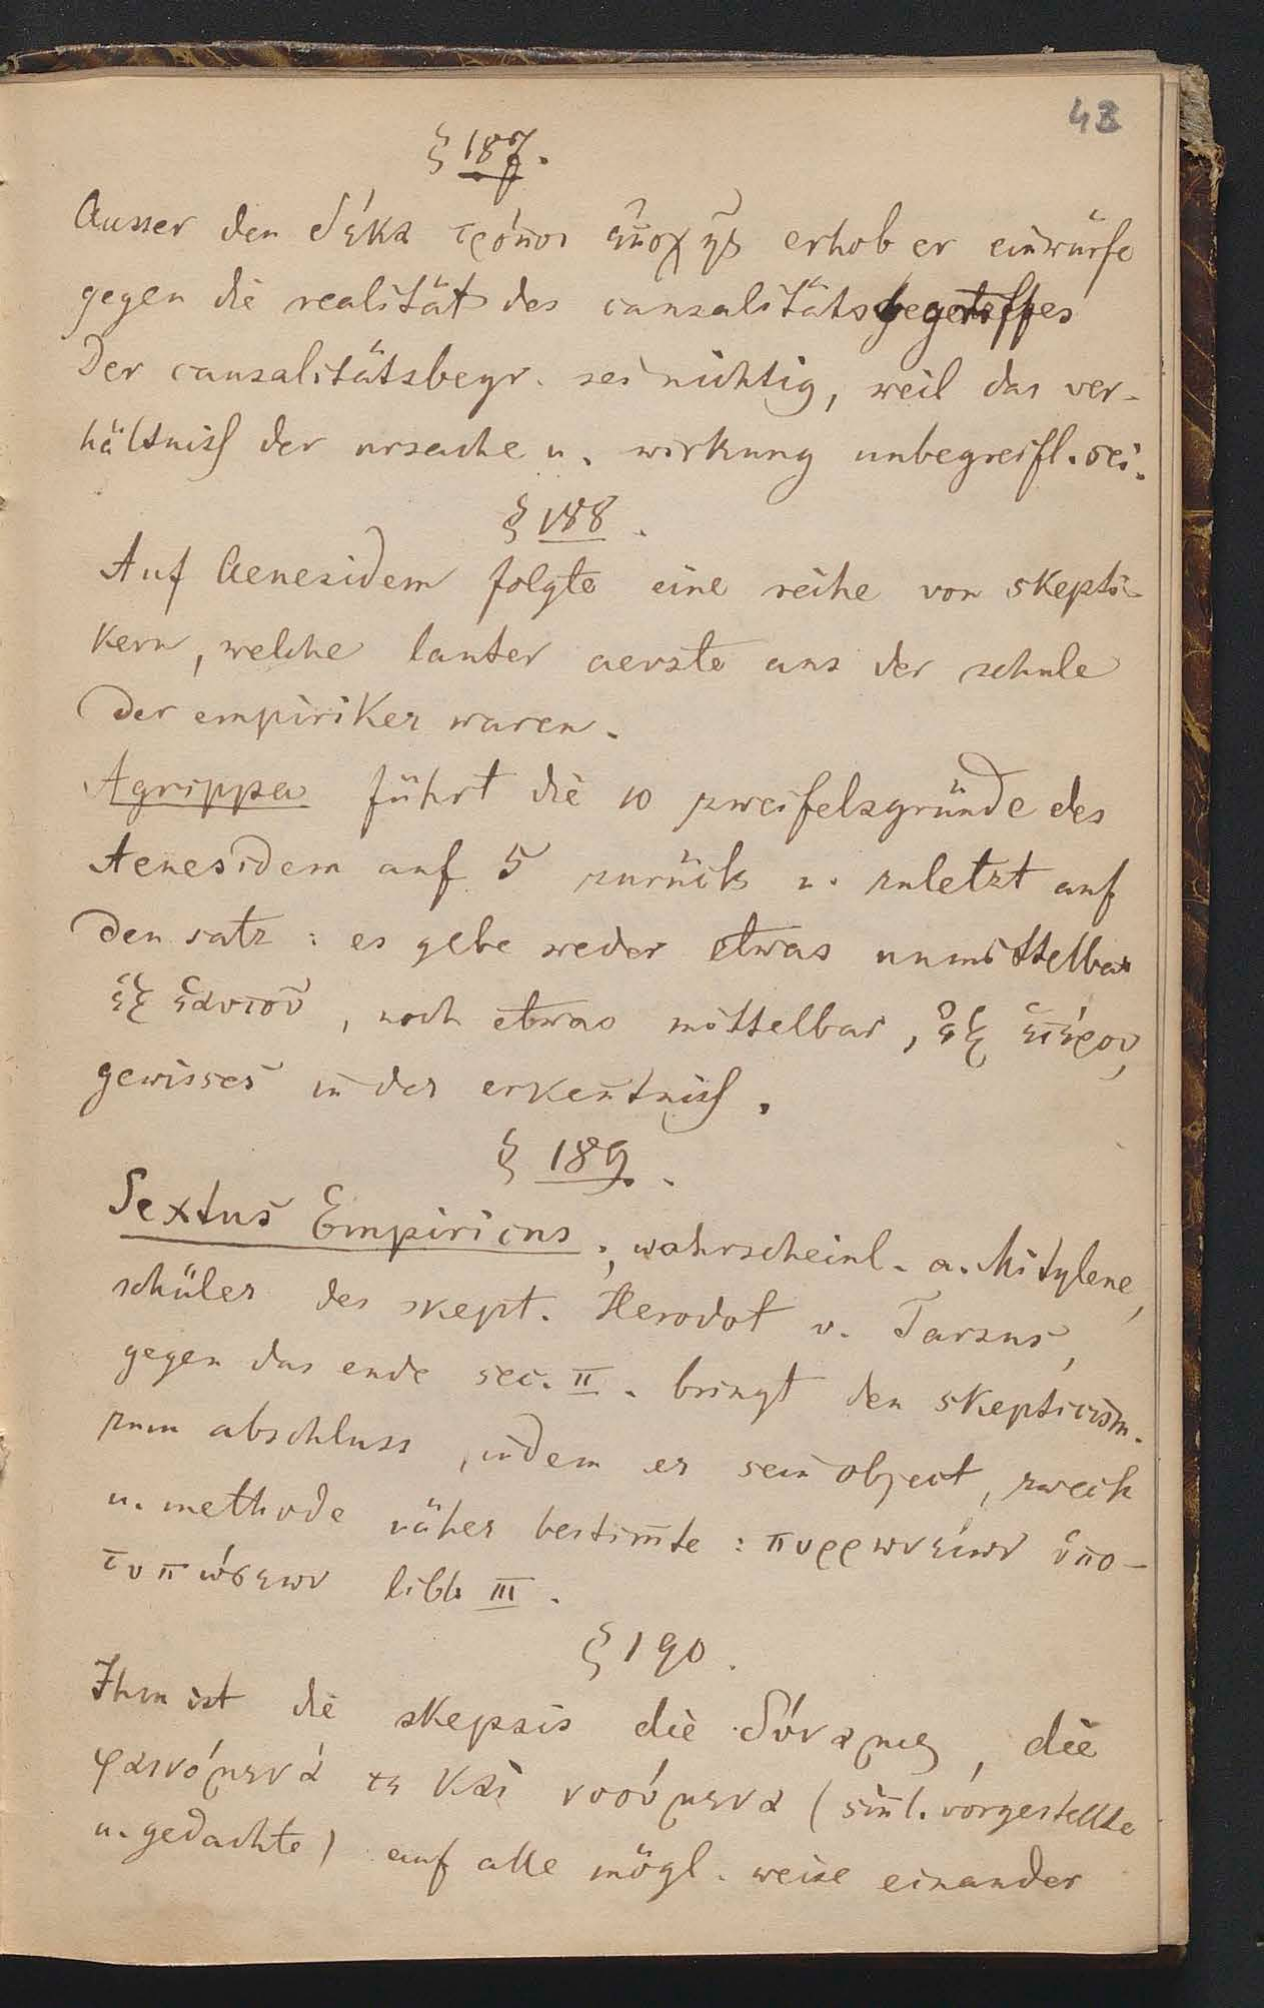 43
§ 187.
Ausser den δέκα τρόποι ἐποχῆς erhob er einwürfe
gegen die realität des causalitätsbegriffes
Der causalitätsbegr. sei nichtig, weil das ver-
hältniß der ursache u. wirkung unbegreifl. sei.
§ 188.
Auf Aenesidem folgte eine reihe von skepti-
kern, welche lauter aerzte aus der schule
der empiriker waren.
Agrippa führt die 10 zweifelsgründe des
Aenesidem auf 5 zurück u. zuletzt auf
den satz: es gebe weder etwas unmittelbar
ἐξ ἑαυτοῦ, noch etwas mittelbar, ἐξ ἑτέρου,
gewisses in der erkeñtniß.
§ 189.
Sextus Empiricus, wahrscheinl. a. Mitylene,
schüler des skept. Herodot v. Tarsus,
gegen das ende sec. II. bringt den skepticism.
zum abschluss, indem er sein object, zweck
u. methode näher bestim̄te: πυρρωνείων ὑπο-
τυπώσεων libb III.
§ 190.
Ihm ist die skepsis die δύναμις, die
φαινόμενά τε καὶ νοούμενα (sin̄l. vorgestellte
u. gedachte) auf alle mögl. weise einander